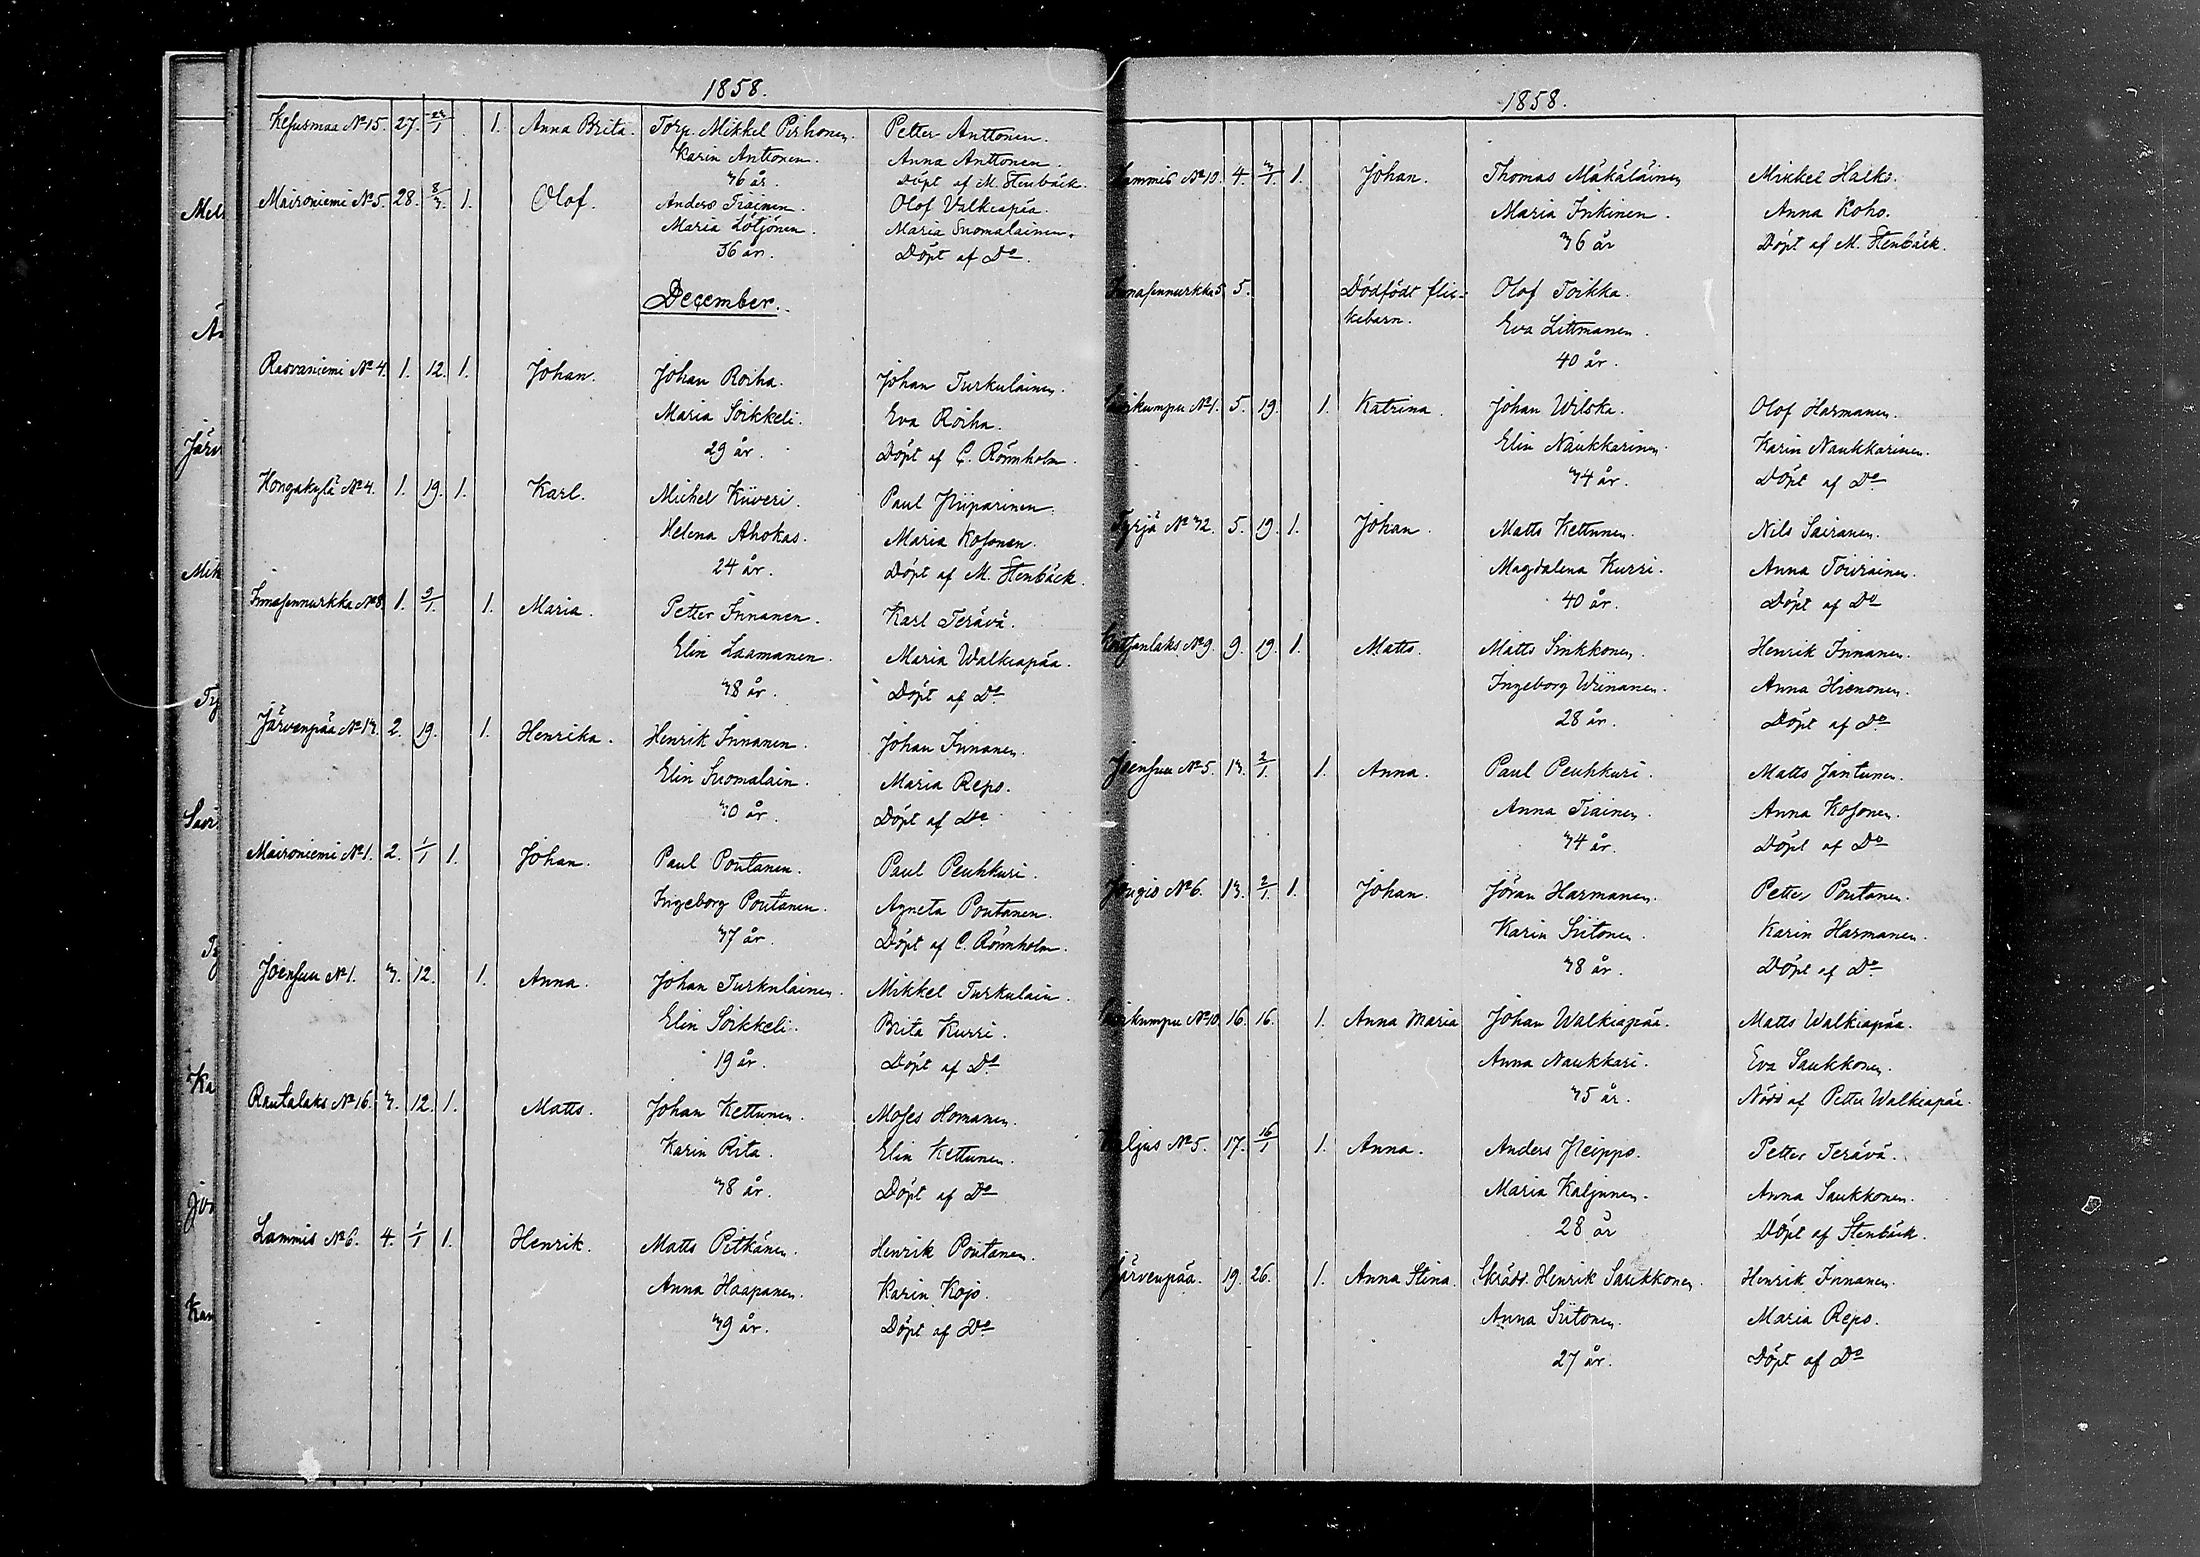 1858.
Kesusmaa No 15. 27. 1. Anna Brita. Torp. Mikkel Pirhonen. Petter Anttonen.
Karin Anttonen. Anna Anttonen.
36 år. Döpt af M. Stenbäck.
Maironiemi No 5. 28. 8/3. 1. Olof. Anders Tiainen. Olof Valkiapää.
Maria Lötjönen. Maria Suomalainen.
36 år. Döpt af Do.
December.
Rasvaniemi No 4. 1. 12. 1. Johan. Johan Roiha. Johan Turkulainen.
Maria Soikkeli. Eva Roiha.
29 år. Döpt af C. Rönnholm.
Hongakylä No 4. 1. 19. 1. Karl. Michel Kiiveri. Paul Piiparinen.
Helena Ahokas. Maria Kosonen.
24 år. Döpt af M. Stenbäck.
Innasennurkka No 8. 1. 1. Maria. Petter Innanen. Karl Terävä.
Elin Laamanen. Maria Walkiapää.
38 år. Döpt af Do
Järvenpää No 13. 2. 19. 1. Henrika. Henrik Innanen. Johan Innanen.
Elin Suomalain. Maria Repo.
30 år. Döpt af Do
Maironiemi No 1. 2. 1/1 1. Johan. Paul Poutanen. Paul Peuhkuri.
Ingeborg Poutanen. Agneta Poutanen.
37 år. Döpt af C. Rönnholm.
Joensuu No 1. 3. 12. 1. Anna. Johan Turkulainen. Mikkel Turkulain.
Elin Soikkeli. Brita Kurri.
19 år. Döpt af Do
Rautalaks No 16. 3. 12. 1. Matts. Johan Kettunen. Moses Homanen.
Karin Rita. Elin Kettunen.
38 år. Döpt af Do
Lammis No 6. 4. 1/1 1. Henrik. Matts Pitkänen. Henrik Poutanen.
Anna Haapanen. Karin Kojo.
39 år. Döpt af Do
1858.
Lammis No 10. 4. 3/1. 1. Johan. Thomas Mäkäläinen Mikkel Halko.
Maria Inkinen. Anna Koho.
36 år Döpt af M. Stenbäck.
Innasennurkka 5. 5. Dödfödt flic= Olof Toikka.
kebarn. Eva Littmanen.
40 år.
No 1. 5. 19. 1. Katrina. Johan Wilska. Olof Harmanen.
Elin Naukkarinen. Karin Naukkarinen.
34 år. Döpt af Do
Tyrjä No 32. 5. 19. 1. Johan. Matts Kettunen. Nils Sairanen.
Magdalena Kurri. Anna Toiviainen.
40 år. Döpt af Do
No 9. 9. 19. 1. Matts. Matts Sinkkonen. Henrik Innanen.
Ingeborg Wiinanen. Anna Hienonen.
28 år. Döpt af Do
Joensuu No 5. 13. 2/1. 1. Anna. Paul Peuhkuri. Matts Jantunen.
Anna Tiainen. Anna Kosonen.
34 år. Döpt af Do
No 6. 13. 2/1. 1. Johan. Jöran Harmanen. Petter Poutanen.
Karin Siitonen. Karin Harmanen.
38 år. Döpt af Do
No 10. 16. 16. 1. Anna Maria Johan Walkiapää. Matts Walkiapää.
Anna Naukkari. Eva Saukkonen.
35 år. Nöd af Petter Walkiapää.
No 5. 17. 16/1 1. Anna. Anders Heippo. Petter Terävä.
Maria Kaljunen. Anna Saukkonen.
28 år Döpt af Stenbäck.
Järvenpää. 19. 26. 1. Anna Stina. Skrädd. Henrik Saukkonen. Henrik Innanen.
Anna Siitonen. Maria Repo.
27 år. Döpt af Do